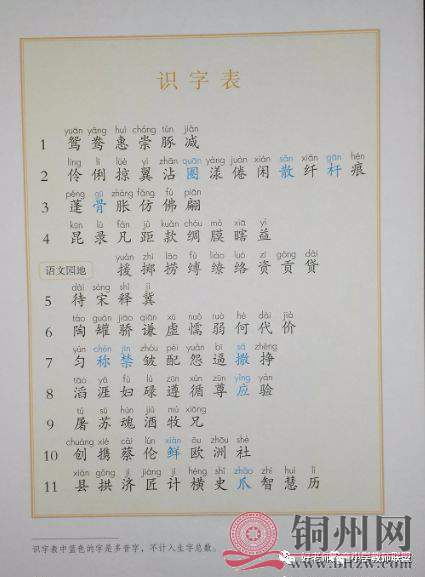 识字表
yuān yāng huì chóng tún jiǎn
1 鸳 鸯 惠 崇 豚 减
líng lì lüè yì zhān quān yàng juàn xián sǎn xiān gān hén
2 伶 俐 掠 翼 沾 圈 漾 倦 闲 散 纤 杆 痕
péng gū zhàng fǎng fú piān
3 蓬 骨 胀 仿 佛 翩
kūn lù fán jù kuǎn chóu mó xiā yì
4 昆 录 凡 距 款 绸 膜 瞎 益
yuán zhì lāo fù liáo luò zī gòng dài
语文园地 援 掷 捞 缚 缭 络 资 贡 贷
dài sòng shì jì
5 待 宋 释 冀
táo guàn jiāo qiān xū nuò ruò hé dài jià
6 陶 罐 骄 谦 虚 懦 弱 何 代 价
yún chèn jīn zhòu pèi yuàn bī sā zhēng
7 匀 称 禁 皱 配 怨 逼 撒 挣
tāo yá fù lù zūn xún zūn yìng yàn
8 滔 涯 妇 碌 遵 循 尊 应 验
tú sū hún jiǔ mù xiōng
9 屠 苏 魂 酒 牧 兄
chuàng xié cài lún xiān ōu zhōu shè
10 创 携 蔡 伦 鲜 欧 洲 社
xiàn gǒng jì jiàng jì héng shǐ zhǎo zhì huì lì
11 县 拱 济 匠 计 横 史 爪 智 慧 历
识字表中蓝色的字是多音字，不计入生字总数。
铜州网